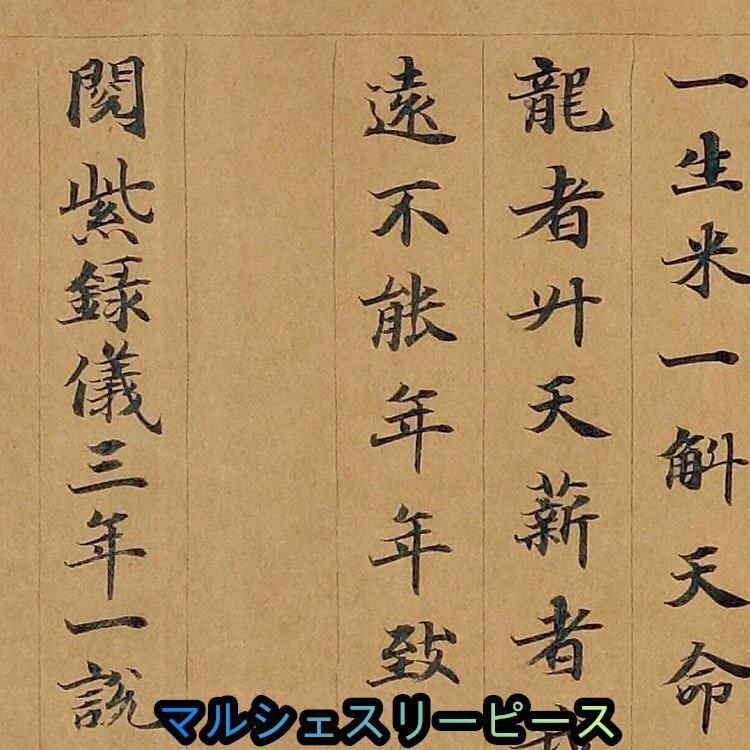 一生米一斛天命
龍者升天薪者
遠不能年年致
閱紫錄儀三年一說
マルシェスリーピース